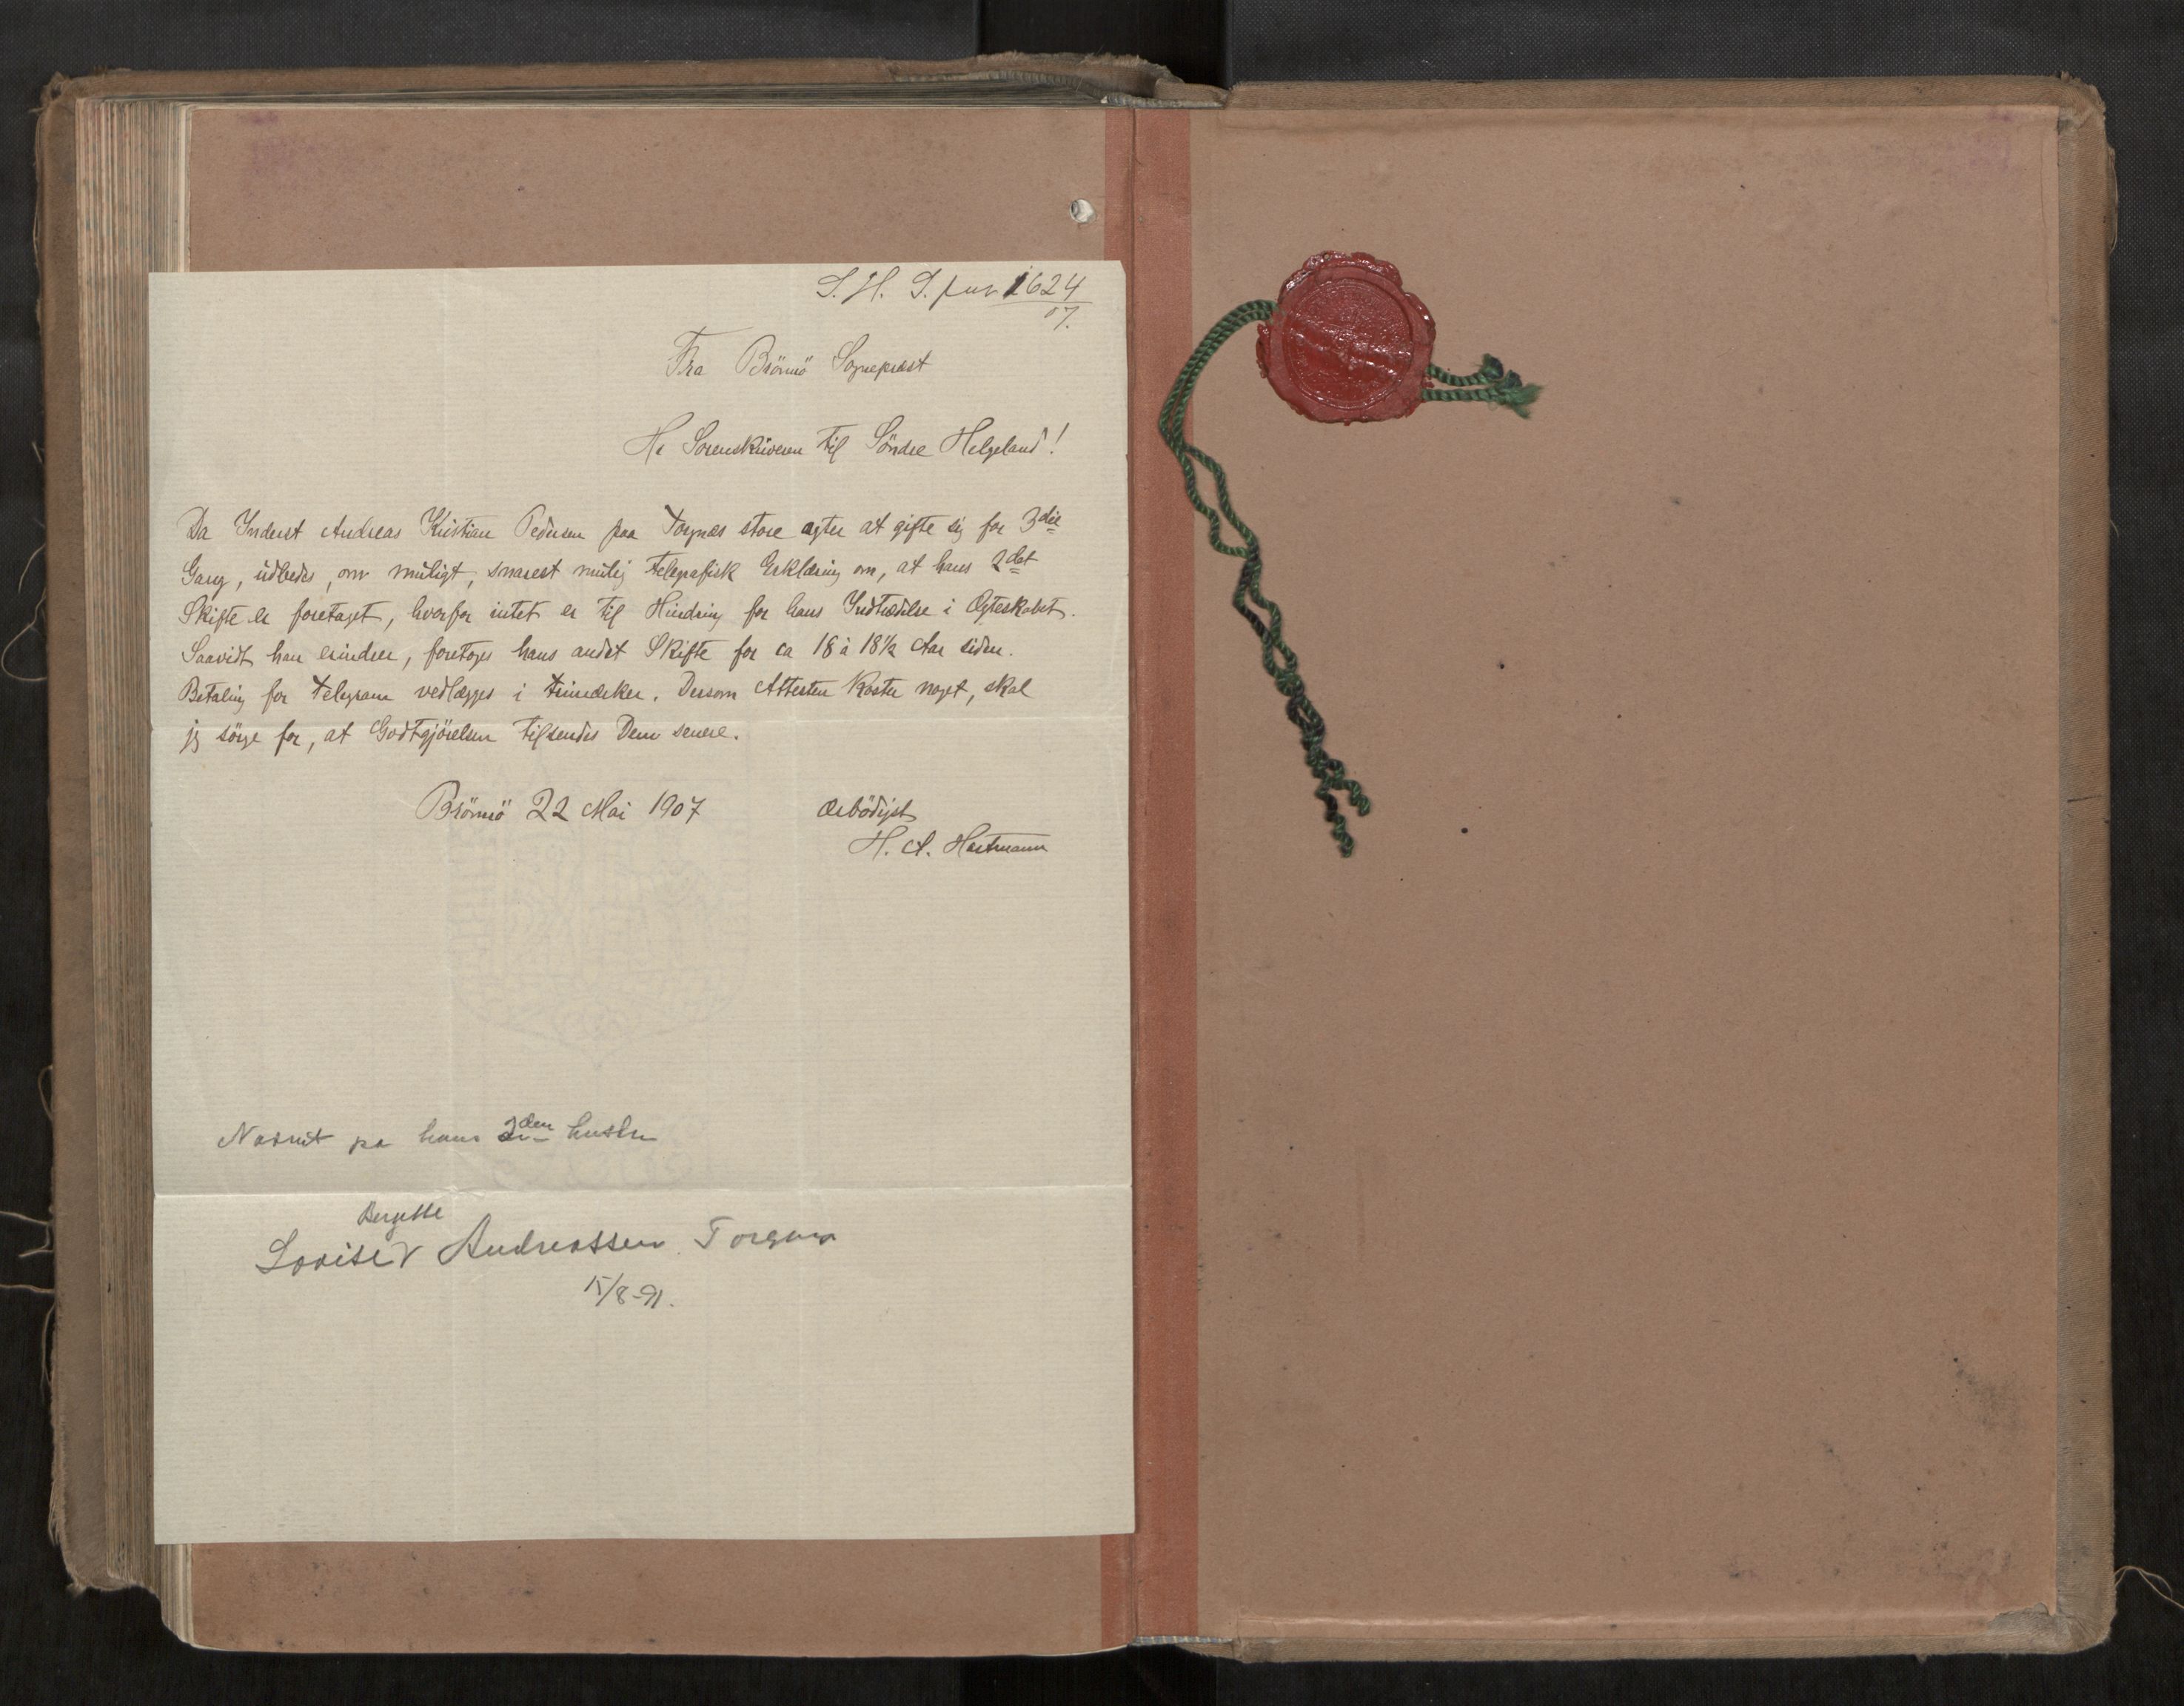 S. H. S. jur 1624
07.
Fra Brönnö Sogneprest
Hr Sorenskriveren til Söndre Helgeland!
Da Inderst Andreas Kristian Pedersen paa Torgnes store agter at gifte sig for 3die
Gang, udbedes, om muligt, snarest mulig telegrafisk Erklæring om, at hans 2det
Skifte er foretaget, hvorfor intet er til Hindring for hans Indtrædelse i Ægteskabet.
Saavidt han erindrer, foretoges hans andet Skifte for ca 18 à 18½ Aar siden.
Betaling for Telegram vedlægges i frimærker. Dersom Attesten koster noget, skal
jeg sörge for, at Godtgjörelsen tilsendes Dem senere.
Brönnö 22 Mai 1907
Ærbödigst
H. A. Hartmann
Navnet pa hans 2den hustru
Bergitte
Lovise Andreassen. Torgnes
15/8-91.